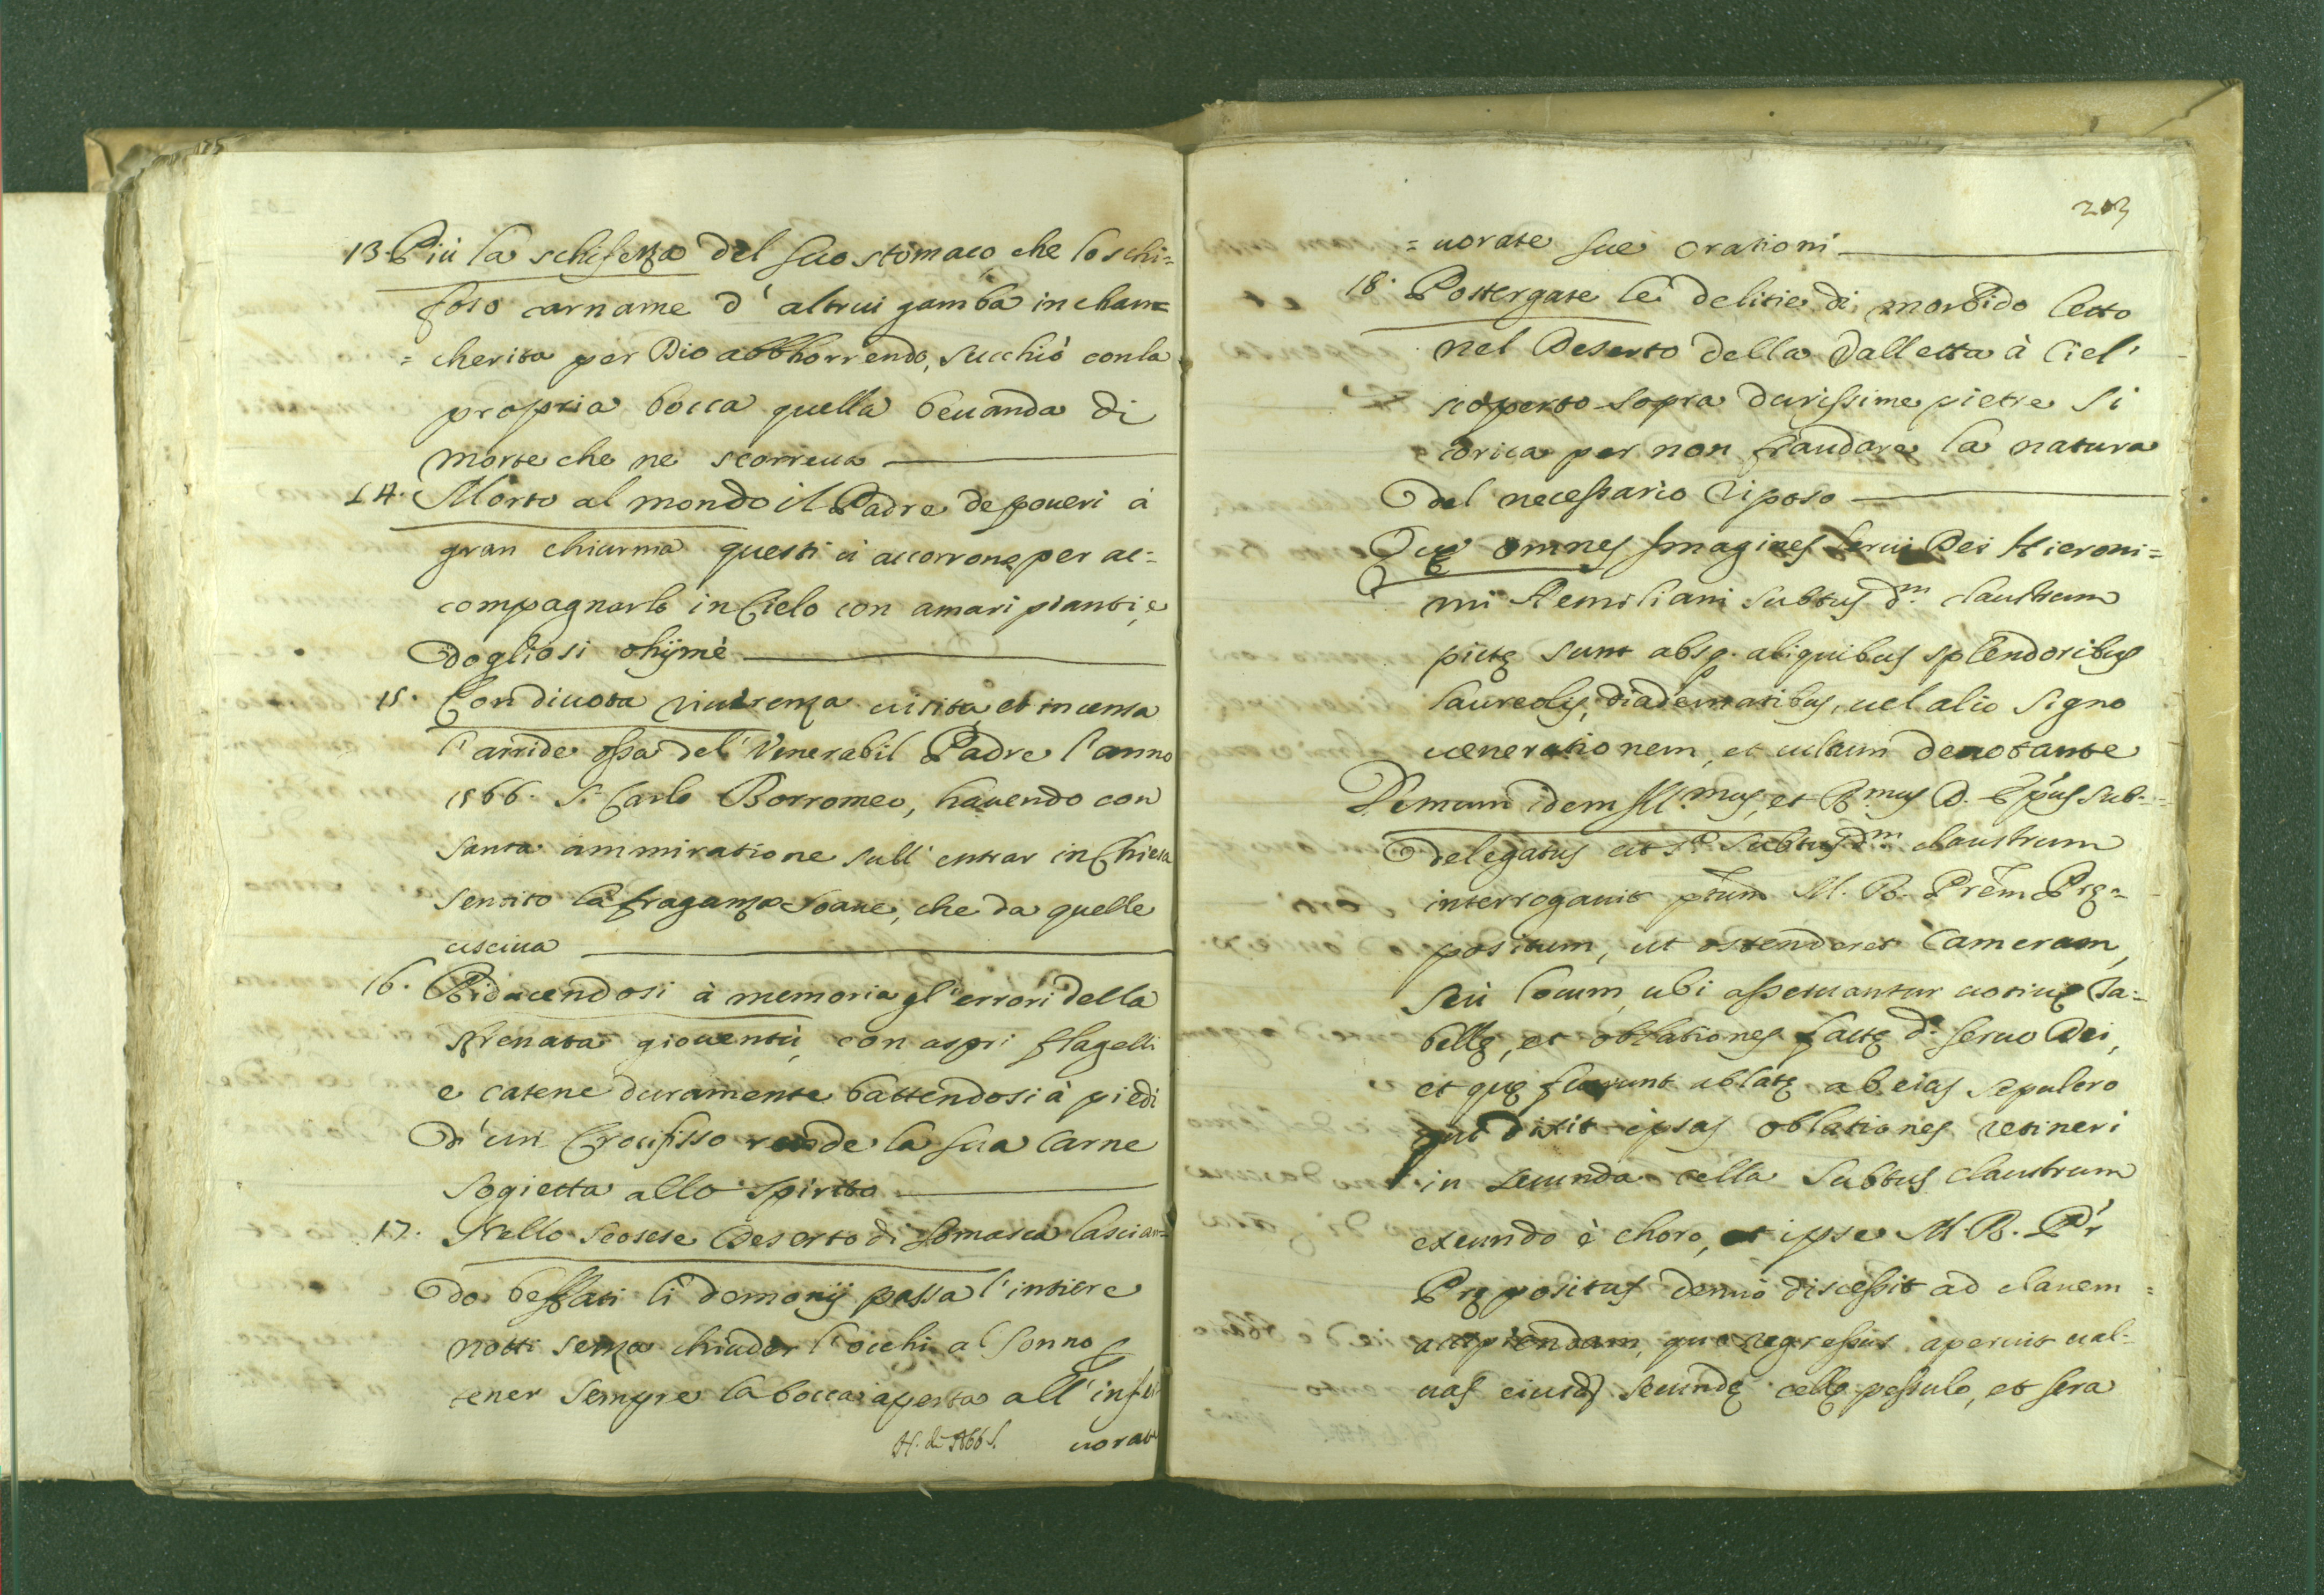 13. Più la schifezza del suo stomaco che lo schi=
foso carname d' altrui gamba in chan=
= cherita per Dio abbhorrendo, succhiò con la
propria bocca quella beuanda di
morte che ne scorreua
14. Morto al mondo il Padre de poueri à
gran chiurma questi ci accorrono per ac=
compagnarlo in Cielo con amari pianti, e
dogliosi ohijmè
15. Con diuota riuerenza uisita, et incensa
l'arride ossa del' Venerabil Padre l'anno
1566. S. Carlo Borromeo, hauendo con
santa ammiratione sull' entrar in Chiesa
sentito la fraganza soaue, che da quelle
usciua
16. Riducendosi à memoria gl' errori della
sfrenata giouentù, con aspri flagelli
e catene duramente battendosi à piedi
d' un Crocifisso rende la sua Carne
sogietta allo spirito
17. Nello scosese Deserto di Somasca lascian=
do beffati li demonij passa l' intiere
notti senza chiuder l' occhi al sonno p
tener sempre la bocca aperta all' infer=
uorate
203
= uorate sue orationi
18. Postergate le delitie di morbido letto
nel Deserto della Valletta à Ciel'
scoperto sopra durissime pietre si
corica per non fraudare la natura
del necessario riposo
Quę omnes Imagines serui Dei Hieroni=
mi Aemiliani subtus dm. claustrum
pictę sunt absq. aliquibus splendoribus
laureolis, diadematibus, uel alio signo
uenerationem, et cultum denotante
Demum idem Ill.mus, et R.mus D. Epus sub=
delegatus ut sa. subtus dm. claustrum
interrogauit ptum M. R. Prem Prę=
positum, ut ostenderet Cameram,
seù locum, ubi asseruantur uotiuę Ta=
bellę, et oblationes factę do. seruo Dei,
et quę fuerunt ablatę ab eius sepulcro
qui dixit ipsas oblationes retineri
in secunda cella subtus claustrum
exeundo è choro, et ipse M. R. Pr
Prępositus denuò discessit ad clauem
accipiendam, qua regressus aperuit ual=
uas eiusd secundę cellę pessulo, et sera